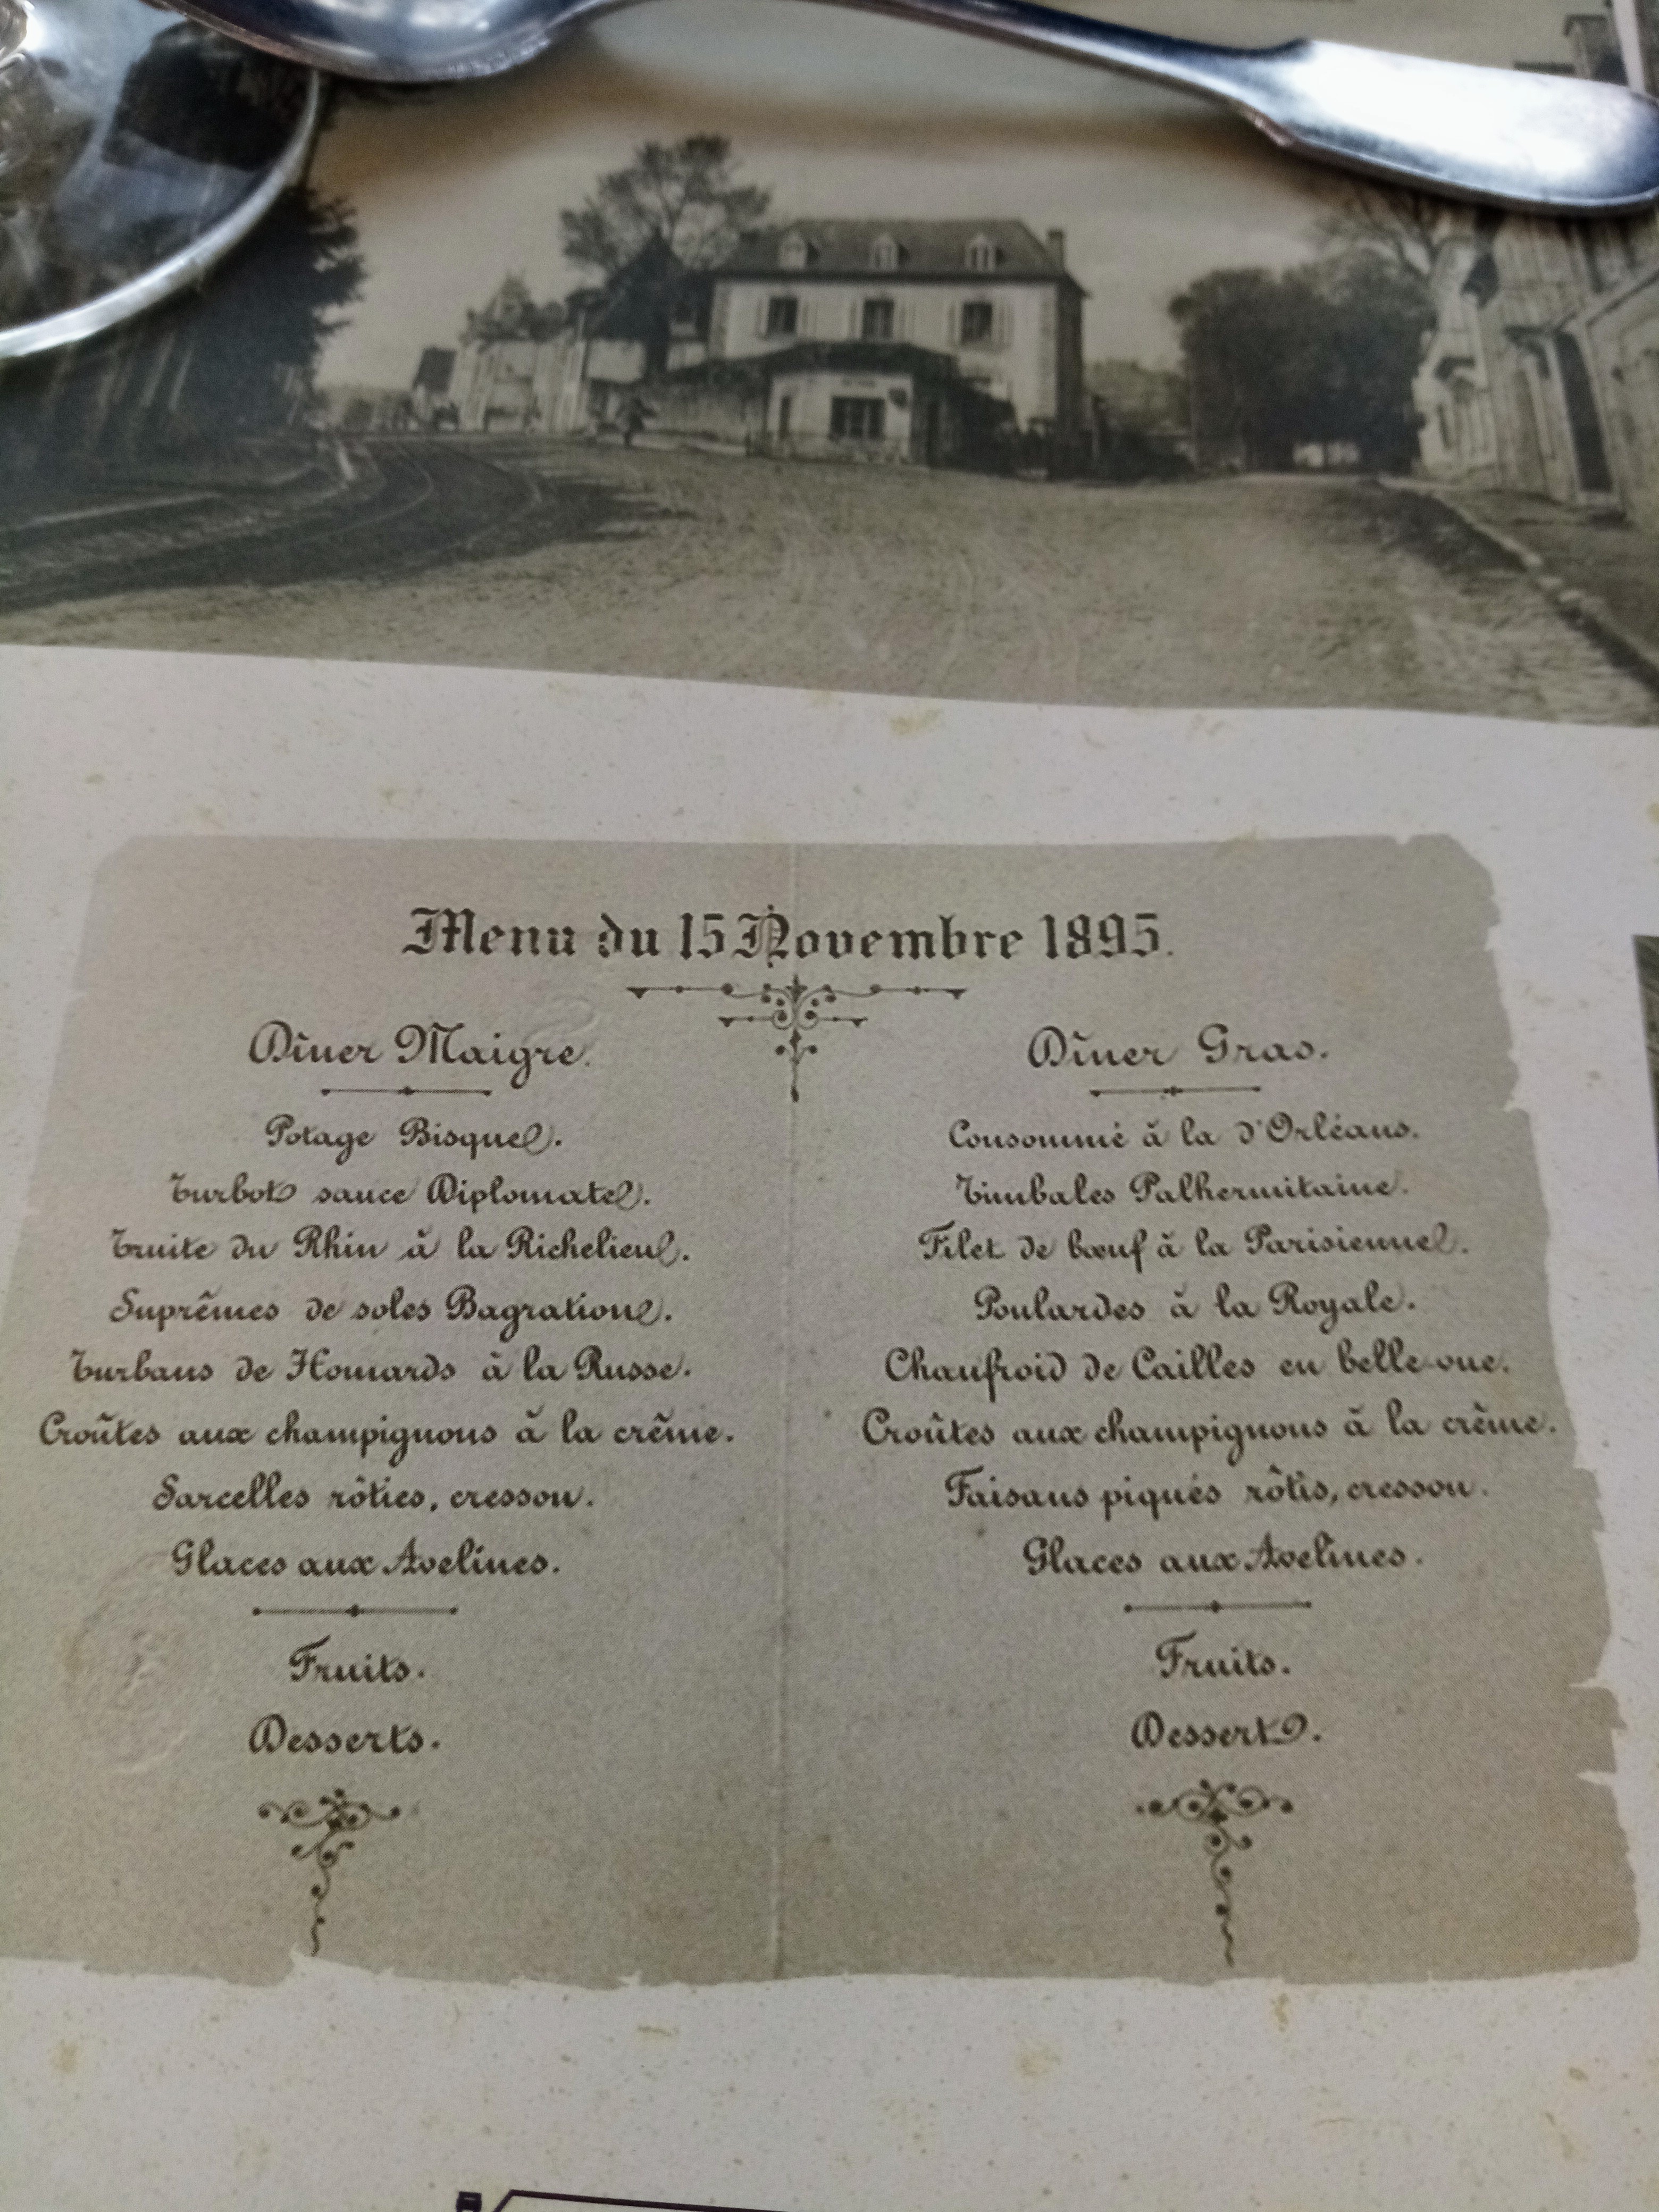 Menu du 15 Novembre 1895.
Dîner Maigre.
Potage Bisque.
Turbot sauce Diplomate.
Truite du Rhin à la Richelieu.
Suprêmes de soles Bagration.
Turbans de Homards à la Russe.
Croûtes aux champignons à la crême.
Sarcelles rôties, cresson.
Glaces aux Avelines.
Fruits.
Desserts.
Dîner Gras.
Consommé à la d'Orléans.
Timbales Palhermitaine.
Filet de bœuf à la Parisienne.
Poulardes à la Royale.
Chaufroid de Cailles en belle-vue.
Croûtes aux champignons à la crême.
Faisans piqués rôtis, cresson.
Glaces aux Avelines.
Fruits.
Dessert.